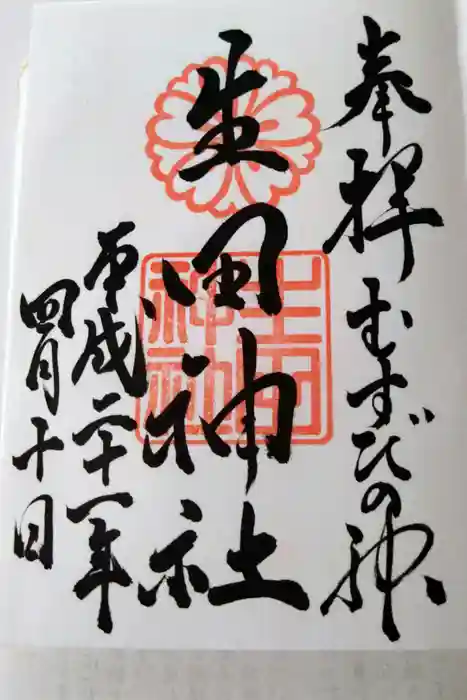 奉拝 むすびの神
生田神社
生田神社
平成二十一年
四月十日